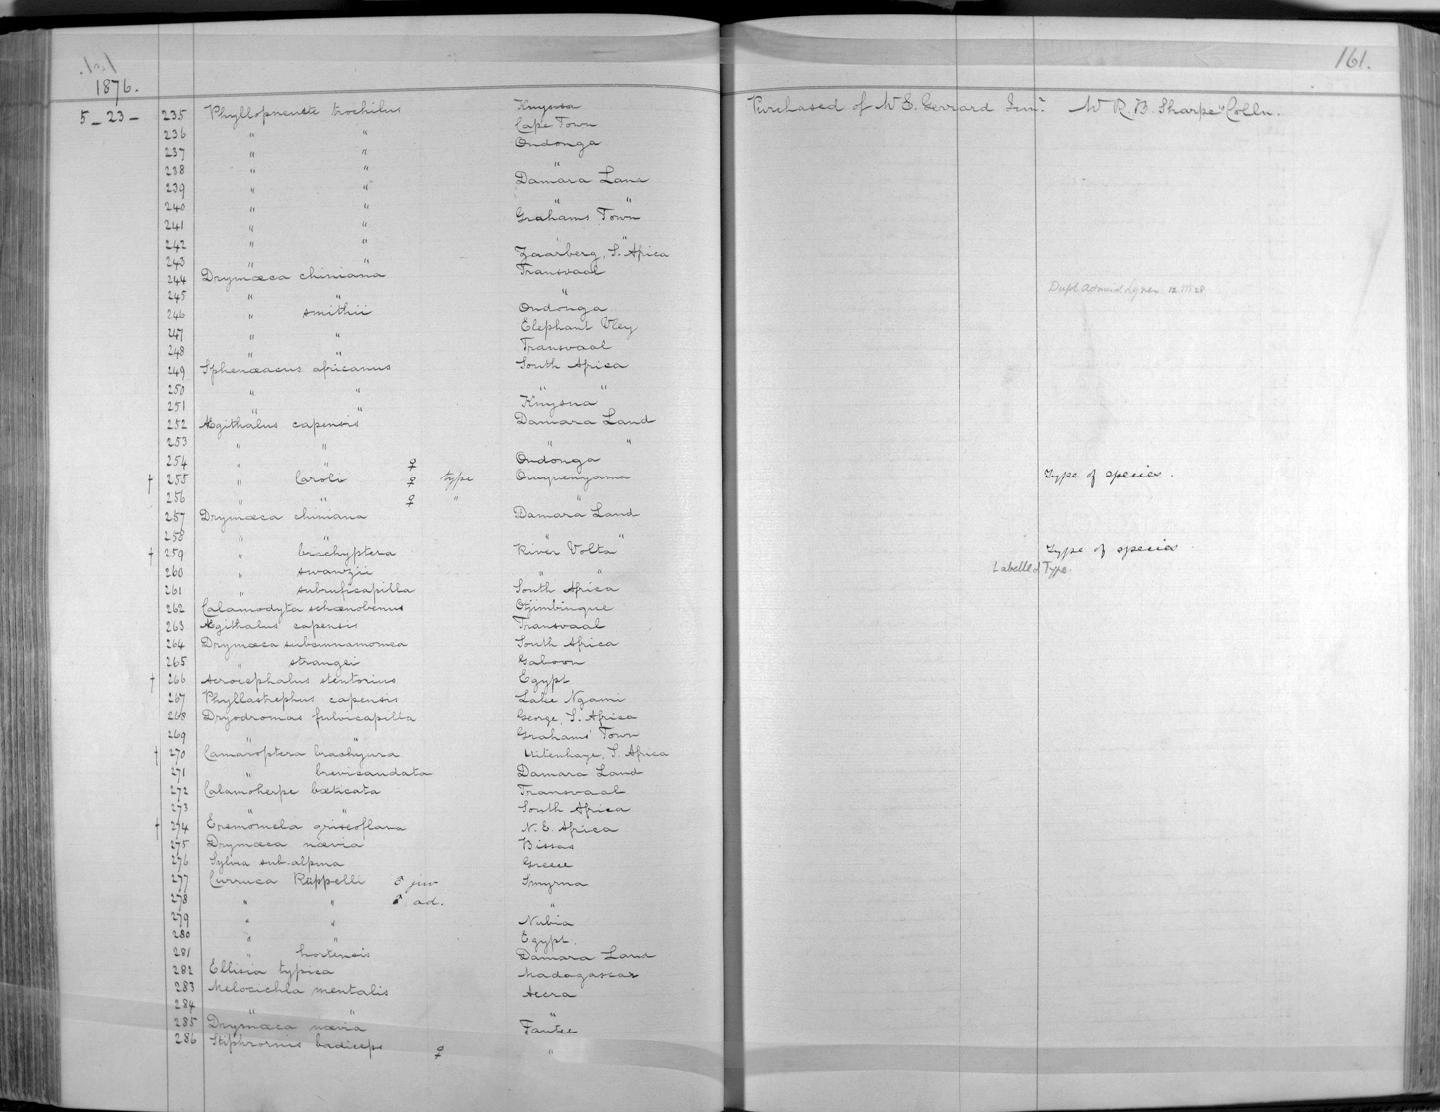 161.
1876.
5_23_ 235 Phyllopneuste trochilus Knysna Purchased of W E. Gerrard Junr. W R. B. Sharpe's Colln.
236 " " Cape Town
237 " " Ondonga
238 " " "
239 " " Damara Land
240 " " " "
241 " " Grahams Town
242 " " "
243 " " Zaarberg, S. Africa
244 Drymœca chiniana Transvaal
245 " " " 12.III.28
246 " smithii Ondonga
247 " " Elephant Vley
248 " " Transvaal
249 Sphenœacus africanus South Africa
250 " " " "
251 " " Knysna
252 Ægithalus capensis Damara Land
253 " " " "
254 " " ♀ Ondonga
† 255 " Caroli ♀ type Type of species.
256 " " ♀ " "
257 Drymœca chiniana Damara Land
258 " " " "
† 259 " brachyptera River Volta Type of species
260 " swanzii " " Labelled Type.
261 " subruficapilla South Africa
262 Calamodyta schœnobenus Otjimbinque
263 Ægithalus capensis Transvaal
264 Drymœca subcinnamomea South Africa
265 " strangei Gaboon
† 266 Acrocephalus stentorius Egypt
267 Phyllastrephus capensis Lake Ngami
268 Dryodromas fulvicapilla George, S. Africa
269 " " Grahams Town
† 270 Camaroptera brachyura Uitenhage, S. Africa
271 " brevicaudata Damara Land
272 Calamoherpe bœticata Transvaal
273 " " South Africa
† 274 Eremomela griseoflava N. E. Africa
275 Drymœca nœvia Bissao
276 Sylvia sub-alpina Greece
277 Curruca Rüppelli ♂ juv Smyrna
278 " " ♂ ad. "
279 " " Nubia
280 " " Egypt.
281 " hortensis Damara Land
282 Ellisia typica Madagascar
283 Melocichla mentalis Accra
284 " " "
285 Drymœca nœvia Fantee
286 Stiphrornis badiceps ♀ "